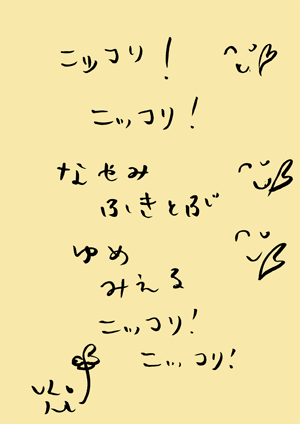 ニッコリ!
ニッコリ!
なやみ
ふきとぶ
ゆめ
みえる
ニッコリ!
ニッコリ!